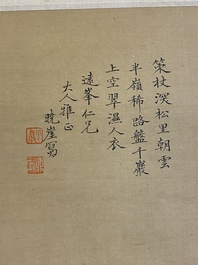 策杖深松里朝雲
半嶺稀路盤千巖
上空翠濕人衣
遠峯仁兄
大人雅正
晚崖寫